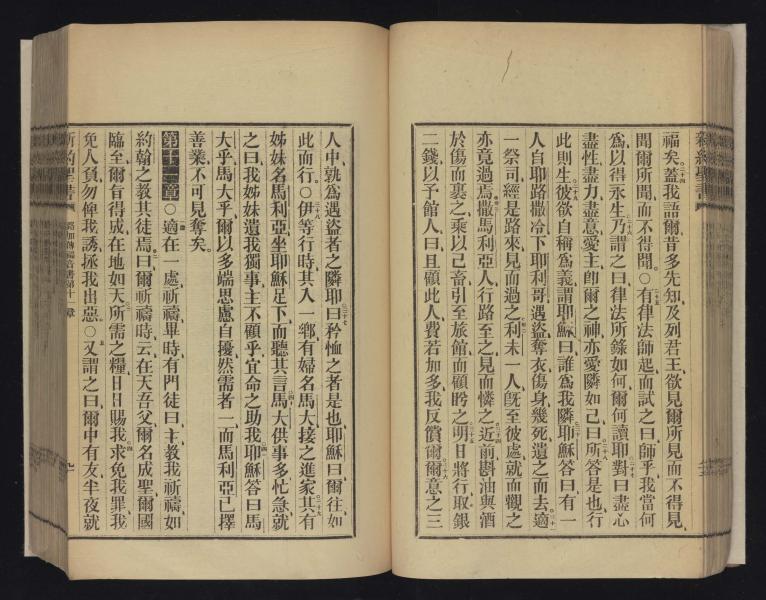 新約聖書
福矣蓋我語爾昔多先知及列君王欲見爾所見而不得見
聞爾所聞而不得聞○有律法師起而試之曰師乎我當何
為以得永生乃謂之曰律法所錄如何爾何讀耶對曰盡心
盡性盡力盡意愛主卽爾之神亦愛隣如己曰所答是也行
此則生彼欲自稱為義謂耶穌曰誰為我隣耶穌答曰有一
人自耶路撒冷下耶利哥遇盜奪衣傷身幾死遺之而去適
一祭司經是路來見而過之利未一人旣至彼處就而觀之
亦竟過焉撒馬利亞人行路至之見而憐之近前斟油與酒
於傷而裹之乘以己畜引至旅館而顧眄之明日將行取銀
二錢以予館人曰且顧此人費若加多我反償爾爾意之三
人中孰為遇盜者之隣耶曰矜恤之者是也耶穌曰爾往如
此而行○伊等行時其入一鄉有婦名馬大接之進家其有
姊妹名馬利亞坐耶穌足下而聽其言馬大供事多忙急就
之曰我姊妹遺我獨事主不顧乎宜命之助我耶穌答曰馬
大乎馬大乎爾以多端思慮自擾然需者一而馬利亞已擇
善業不可見奪矣
第十一章○適在一處祈禱畢時有門徒曰主教我祈禱如
約翰之教其徒焉曰爾祈禱時云在天吾父爾名成聖爾國
臨至爾旨得成在地如天所需之糧日日賜我求免我罪我
免人負勿俾我誘拯我出惡○又謂之曰爾中有友半夜就
新約聖書
路加傳福音書第十一章